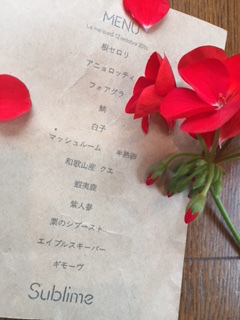 MENU
Le mercredi 12 octobre 2016
根セロリ
アニョロッティ
フォアグラ
鯖
白子
マッシュルーム 半熟卵
和歌山産 クエ
蝦夷鹿
紫人参
栗のシブースト
エイブルスキーバー
ギモーヴ
Sublime